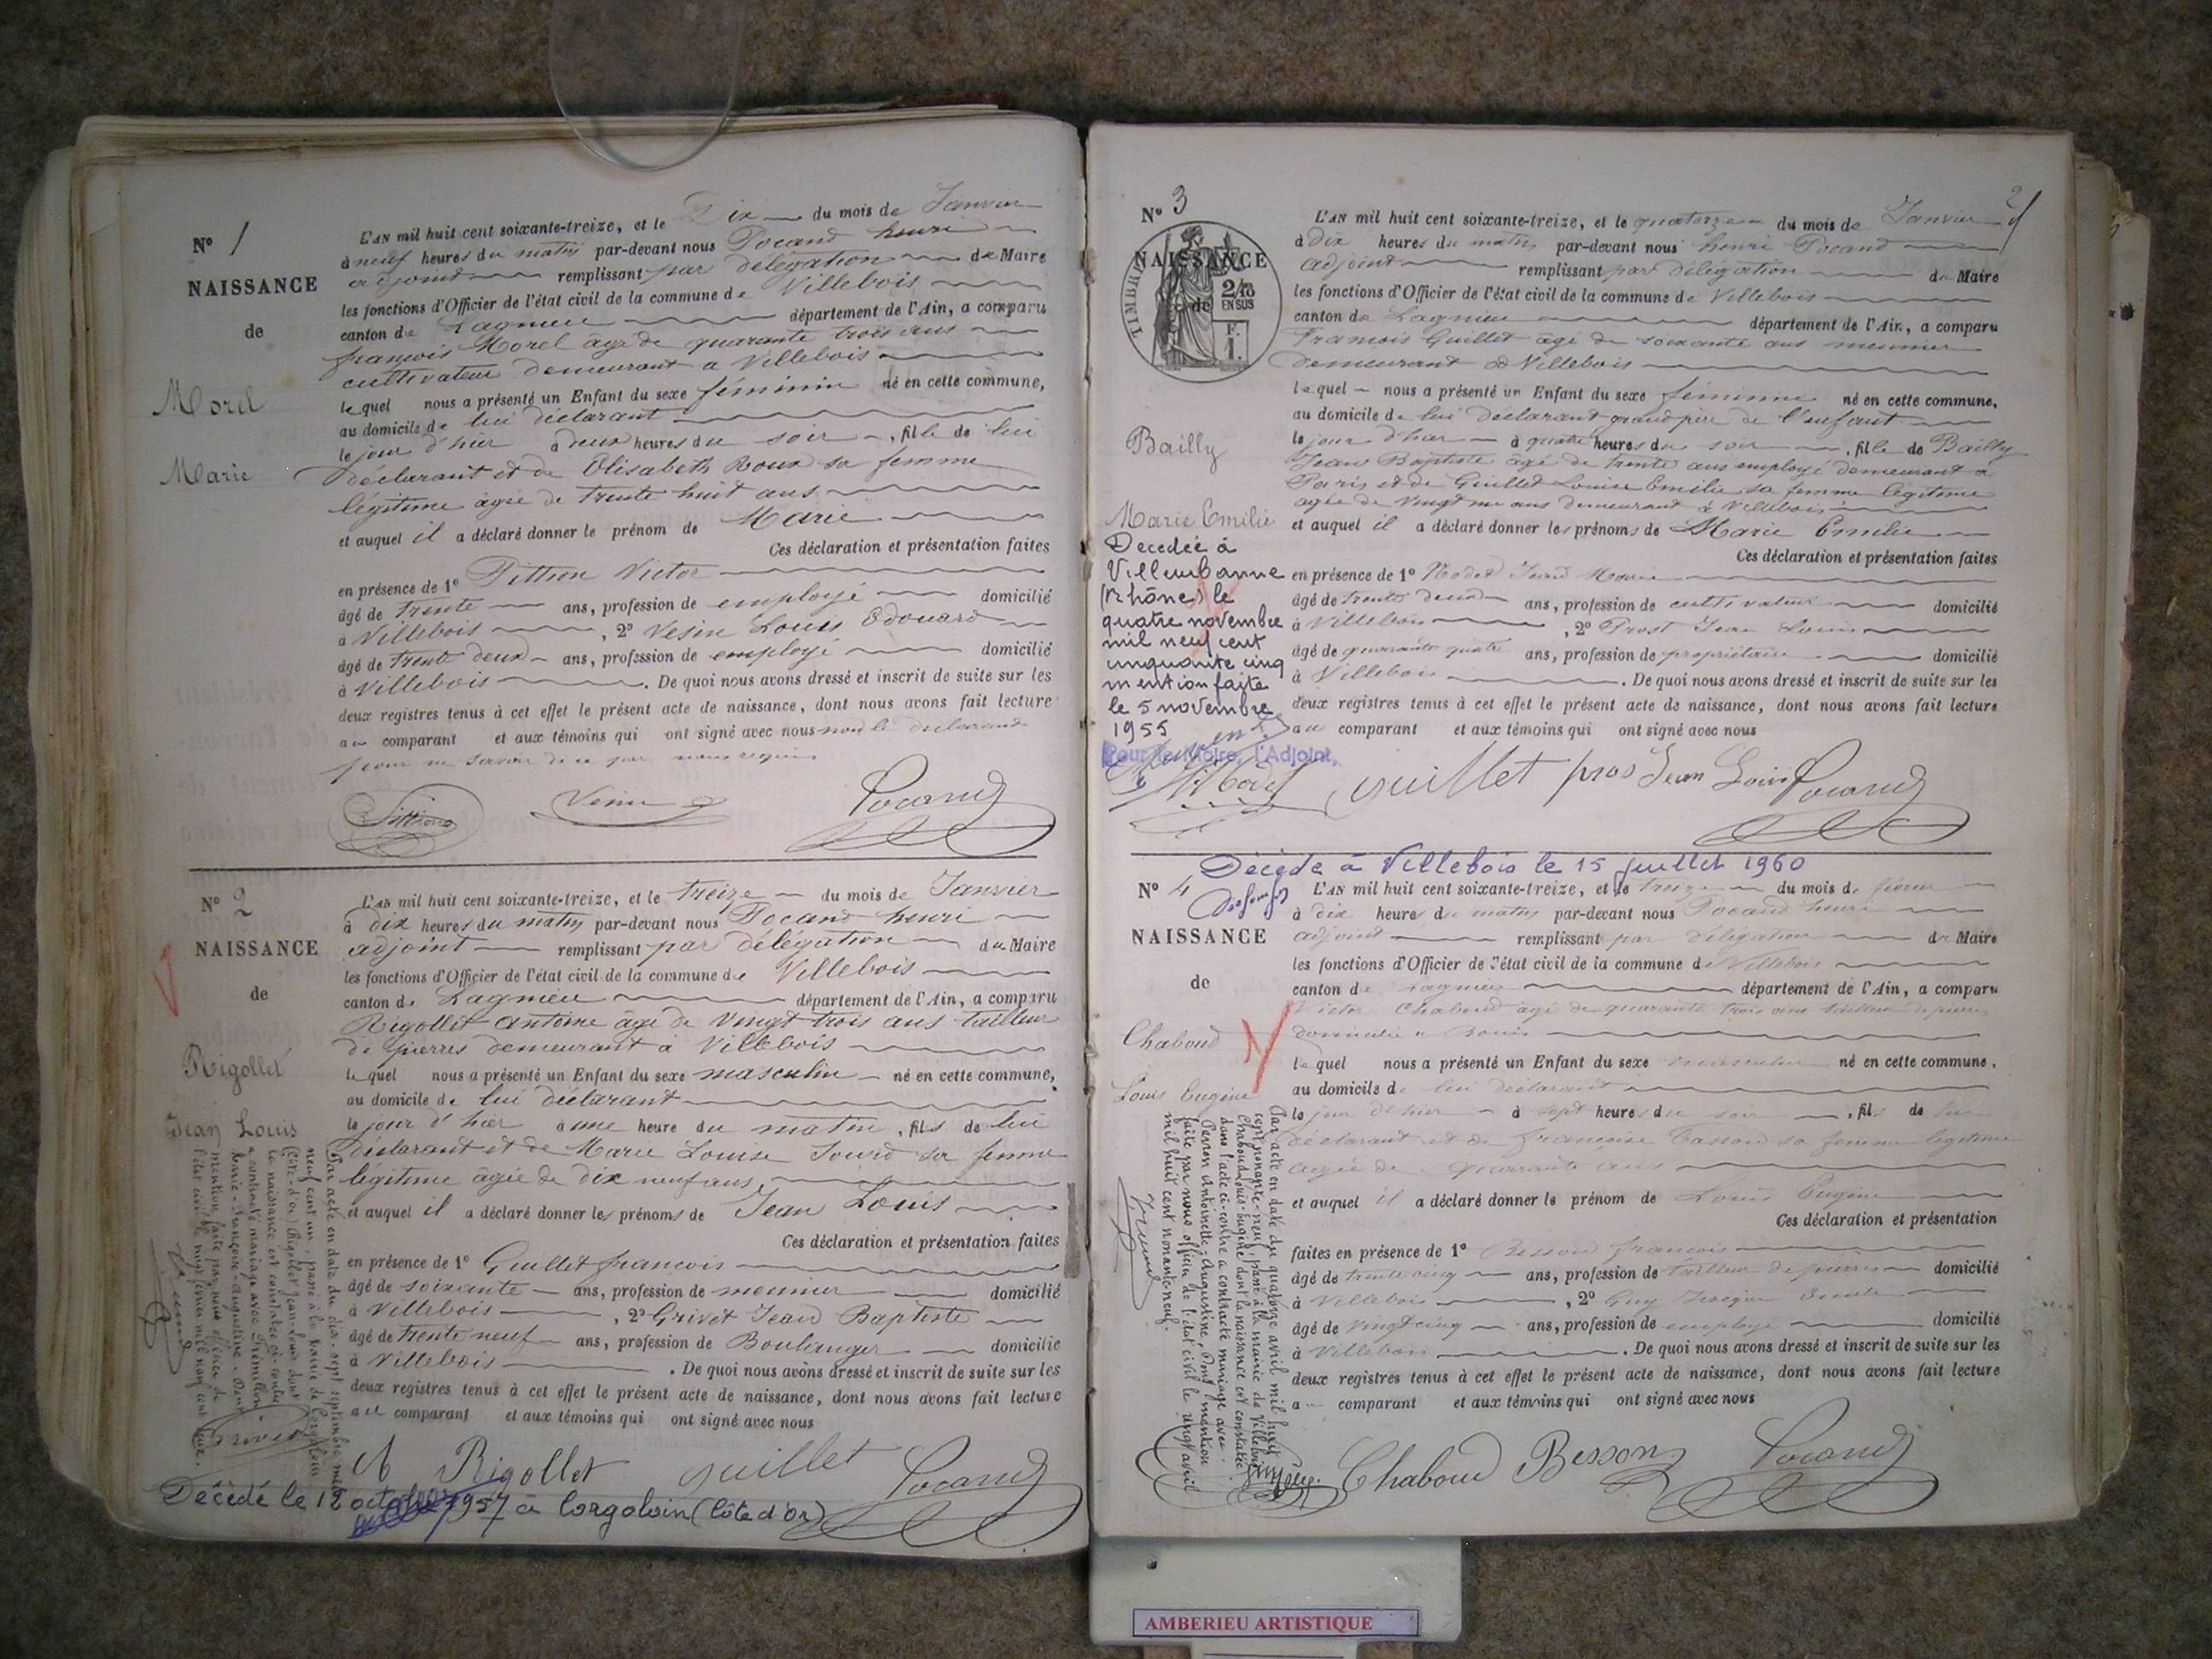 N° 1
NAISSANCE
de
Morel
Marie
L'AN mil huit cent soixante-treize, et le Dix du mois de Janvier
à neuf heures du matin par-devant nous Pocand henri
adjoint remplissant par délégation du Maire
les fonctions d'Officier de l'état civil de la commune de Villebois
canton de Lagnieu département de l'Ain, a comparu
françois Morel agé de quarante trois ans
cultivateur demeurant a Villebois
lequel nous a présenté un Enfant du sexe féminin né en cette commune,
au domicile de lui déclarant
le jour d'hier à deux heures du soir, fille de lui
déclarant et de Elisabeth Roux sa femme
légitime âgée de trente huit ans
et auquel il a déclaré donner le prénom de Marie
Ces déclaration et présentation faites
en présence de 1° Pittion Victor
âgé de trente ans, profession de employé domicilié
à Villebois, 2° Vesin Louis Edouard
âgé de trente deux ans, profession de employé domicilié
à Villebois. De quoi nous avons dressé et inscrit de suite sur les
deux registres tenus à cet effet le présent acte de naissance, dont nous avons fait lecture
au comparant et aux témoins qui ont signé avec nous non le déclarant
pour ne savoir de ce par nous requis
Pittion Vesin Pocand
N° 2
NAISSANCE
de
Rigollet
Jean Louis
L'AN mil huit cent soixante-treize, et le treize du mois de Janvier
à dix heures du matin par-devant nous Pocand henri
adjoint remplissant par délégation du Maire
les fonctions d'Officier de l'état civil de la commune de Villebois
canton de Lagnieu département de l'Ain, a comparu
Rigollet antoine âgé de vingt trois ans tailleur
de pierres demeurant à Villebois
lequel nous a présenté un Enfant du sexe masculin né en cette commune,
au domicile de lui déclarant
le jour d'hier à une heure du matin, fils de lui
déclarant et de Marie Louise Jourd sa femme
légitime âgée de dix neuf ans
et auquel il a déclaré donner les prénoms de Jean Louis
Ces déclaration et présentation faites
en présence de 1° Guillet francois
âgé de soixante ans, profession de meunier domicilié
à Villebois, 2° Grivet Jean Baptiste
âgé de trente neuf ans, profession de Boulanger domicilié
à Villebois. De quoi nous avons dressé et inscrit de suite sur les
deux registres tenus à cet effet le présent acte de naissance, dont nous avons fait lecture
au comparant et aux témoins qui ont signé avec nous
Par acte en date du dix-sept septembre mil
neuf cent un, passé à la mairie de Corgoloin
(Côte-d'or) Rigollet Jean-Louis dont
la naissance est constatée ci-contre
a contracté mariage avec
Marie-Françoise-Augustine. Dont
mention faite par nous officier de
l'état civil le
Grivet
A Rigollet Guillet Pocand
Décédé le 12 octobre 1957 à Corgoloin (Côte d'Or)
2
N° 3
TIMBRE
2/10
EN SUS
F.
1.
NAISSANCE
de
Bailly
Marie Emilie
Decedée à
Villeurbanne
(Rhône) le
quatre novembre
mil neuf cent
cinquante cinq
mention faite
le 5 novembre
1955
Pour le Maire, l'Adjoint,
L'AN mil huit cent soixante-treize, et le quatorze du mois de Janvier
à dix heures du matin par-devant nous henri Pocand
adjoint remplissant par délégation du Maire
les fonctions d'Officier de l'état civil de la commune de Villebois
canton de Lagnieu département de l'Ain, a comparu
Francois Guillet âgé de soixante ans meunier
demeurant à Villebois
lequel nous a présenté un Enfant du sexe féminin né en cette commune,
au domicile de lui déclarant grand père de l'enfant
le jour d'hier à quatre heures du soir, fille de Bailly
Jean Baptiste âgé de trente ans employé demeurant à
Paris et de Guillet Louise Emilie sa femme légitime
agée de vingt un ans demeurant à Villebois
et auquel il a déclaré donner les prénoms de Marie Emilie
Ces déclaration et présentation faites
en présence de 1° Marie
âgé de trente deux ans, profession de cultivateur domicilié
à Villebois, 2° Prost Jean Louis
âgé de quarante quatre ans, profession de propriétaire domicilié
à Villebois. De quoi nous avons dressé et inscrit de suite sur les
deux registres tenus à cet effet le présent acte de naissance, dont nous avons fait lecture
au comparant et aux témoins qui ont signé avec nous
Guillet pros Jean Louis Pocand
Décédé à Villebois le 15 juillet 1960
N° 4
NAISSANCE
de
Chaboud
Louis Eugène
L'AN mil huit cent soixante-treize, et le treize du mois de février
à dix heures du matin par-devant nous Pocand henri
adjoint remplissant par délégation du Maire
les fonctions d'Officier de l'état civil de la commune de Villebois
canton de Lagnieu département de l'Ain, a comparu
Victor Chaboud âgé de quarante trois ans tailleur de pierres
domicilié à Bouis
lequel nous a présenté un Enfant du sexe masculin né en cette commune,
au domicile de lui déclarant
le jour d'hier à sept heures du soir, fils de lui
déclarant et de françoise sa femme légitime
agée de quarante ans
et auquel il a déclaré donner le prénom de Louis Eugène
Ces déclaration et présentation
faites en présence de 1° Besson francois
âgé de trente cinq ans, profession de tailleur de pierres domicilié
à Villebois, 2° Guy
âgé de vingt cinq ans, profession de employé domicilié
à Villebois. De quoi nous avons dressé et inscrit de suite sur les
deux registres tenus à cet effet le présent acte de naissance, dont nous avons fait lecture
au comparant et aux témoins qui ont signé avec nous
Par acte en date du quatorze avril mil huit
cent nonante-neuf, passé à la mairie de Villebois
Chaboud Louis-Eugène, dont la naissance est constatée
dans l'acte ci-contre a contracté mariage avec
Perron Antoinette-Augustine, Dont mention
faite par nous officier de l'état civil le vingt avril
mil huit cent nonante neuf.
Chaboud Besson Pocand
AMBERIEU ARTISTIQUE